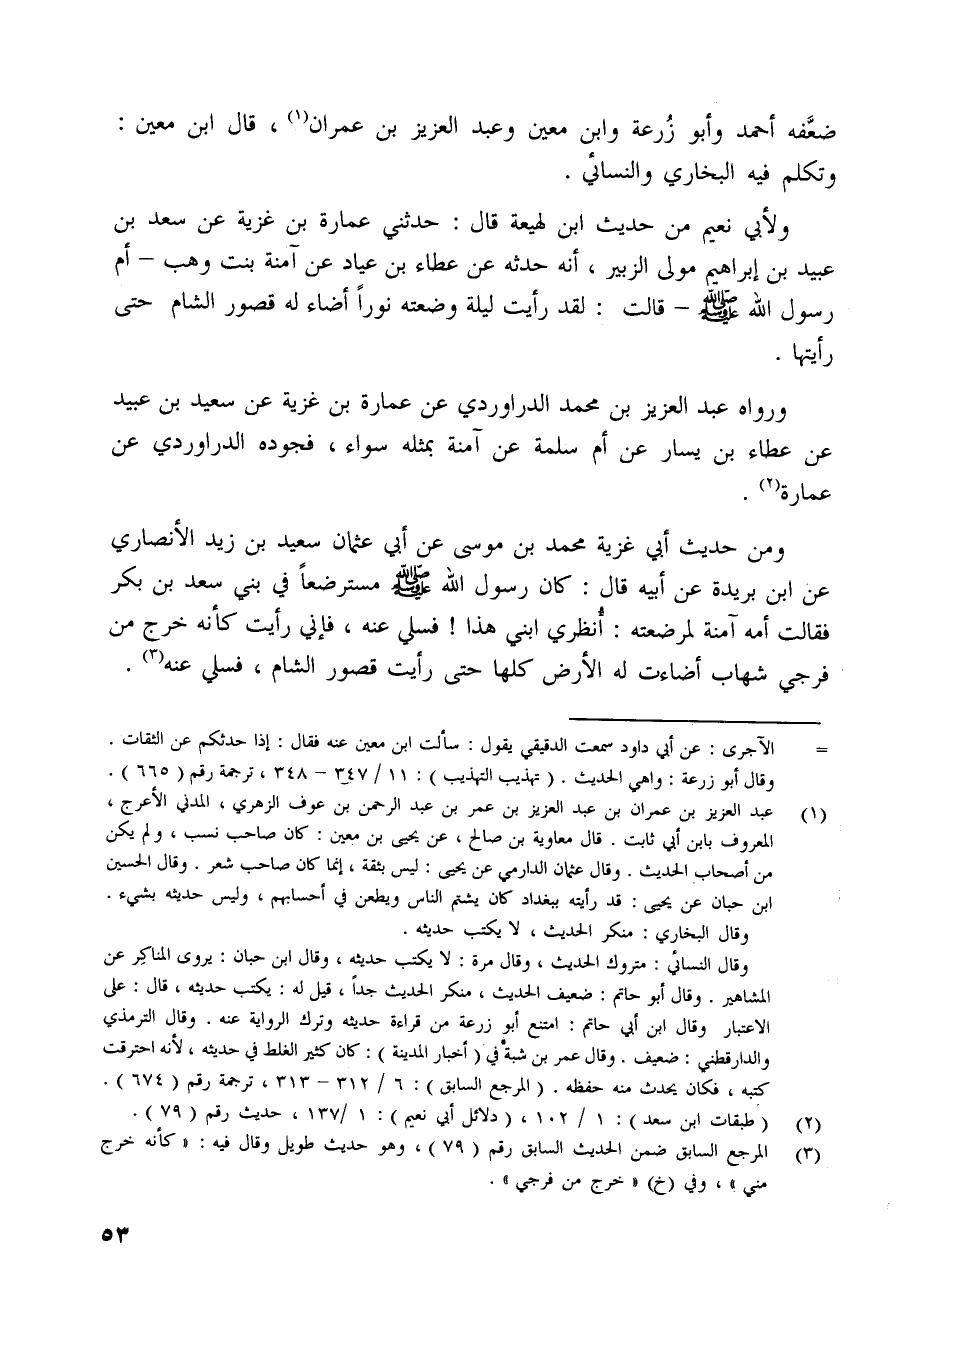 ضعَّفه أحمد وأبو زُرعة وابن معين وعبد العزيز بن عمران(١) ، قال ابن معين :
وتكلم فيه البخاري والنسائي .
ولأبي نعيم من حديث ابن لهيعة قال : حدثني عمارة بن غزية عن سعد بن
عبيد بن إبراهيم مولى الزبير ، أنه حدثه عن عطاء بن عياد عن آمنة بنت وهب – أم
رسول الله ﷺ – قالت : لقد رأيت ليلة وضعته نوراً أضاء له قصور الشام حتى
رأيتها .
ورواه عبد العزيز بن محمد الدراوردي عن عمارة بن غزية عن سعيد بن عبيد
عن عطاء بن يسار عن أم سلمة عن آمنة بمثله سواء ، فجوده الدراوردي عن
عمارة(٢) .
ومن حديث أبي غزية محمد بن موسى عن أبي عثمان سعيد بن زيد الأنصاري
عن ابن بريدة عن أبيه قال : كان رسول الله ﷺ مسترضعاً في بني سعد بن بكر
فقالت أمه آمنة لمرضعته : أُنظري ابني هذا ! فسلي عنه ، فإني رأيت كأنه خرج من
فرجي شهاب أضاءت له الأرض كلها حتى رأيت قصور الشام ، فسلي عنه(٣) .
= الآجرى : عن أبي داود سمعت الدقيقي يقول : سألت ابن معين عنه فقال : إذا حدثكم عن الثقات .
وقال أبو زرعة : واهي الحديث . ( تهذيب التهذيب ) : ١١ / ٣٤٧ – ٣٤٨ ، ترجمة رقم ( ٦٦٥ ) .
(١) عبد العزيز بن عمران بن عبد العزيز بن عمر بن عبد الرحمن بن عوف الزهري ، المدني الأعرج ،
المعروف بابن أبي ثابت . قال معاوية بن صالح ، عن يحيى بن معين : كان صاحب نسب ، ولم يكن
من أصحاب الحديث . وقال عثمان الدارمي عن يحيى : ليس بثقة ، إنما كان صاحب شعر . وقال الحسين
ابن حبان عن يحيى : قد رأيته ببغداد كان يشتم الناس ويطعن في أحسابهم ، وليس حديثه بشيء .
وقال البخاري : منكر الحديث ، لا يكتب حديثه .
وقال النسائي : متروك الحديث ، وقال مرة : لا يكتب حديثه ، وقال ابن حبان : يروى المناكِر عن
المشاهير . وقال أبو حاتم : ضعيف الحديث ، منكر الحديث جداً ، قيل له : يكتب حديثه ، قال : على
الاعتبار وقال ابن أبي حاتم : امتنع أبو زرعة من قراءة حديثه وترك الرواية عنه . وقال الترمذي
والدارقطني : ضعيف . وقال عمر بن شبة في ( أخبار المدينة ) : كان كثير الغلط في حديثه ، لأنه احترقت
كتبه ، فكان يحدث منه حفظه . ( المرجع السابق ) : ٦ / ٣١٢ – ٣١٣ ، ترجمة رقم ( ٦٧٤ ) .
(٢) ( طبقات ابن سعد ) : ١ / ١٠٢ ، ( دلائل أبي نعيم ) : ١ /١٣٧ ، حديث رقم ( ٧٩ ) .
(٣) المرجع السابق ضمن الحديث السابق رقم ( ٧٩ ) ، وهو حديث طويل وقال فيه : « كأنه خرج
مني » ، وفي (خ) « خرج من فرجي » .
٥٣